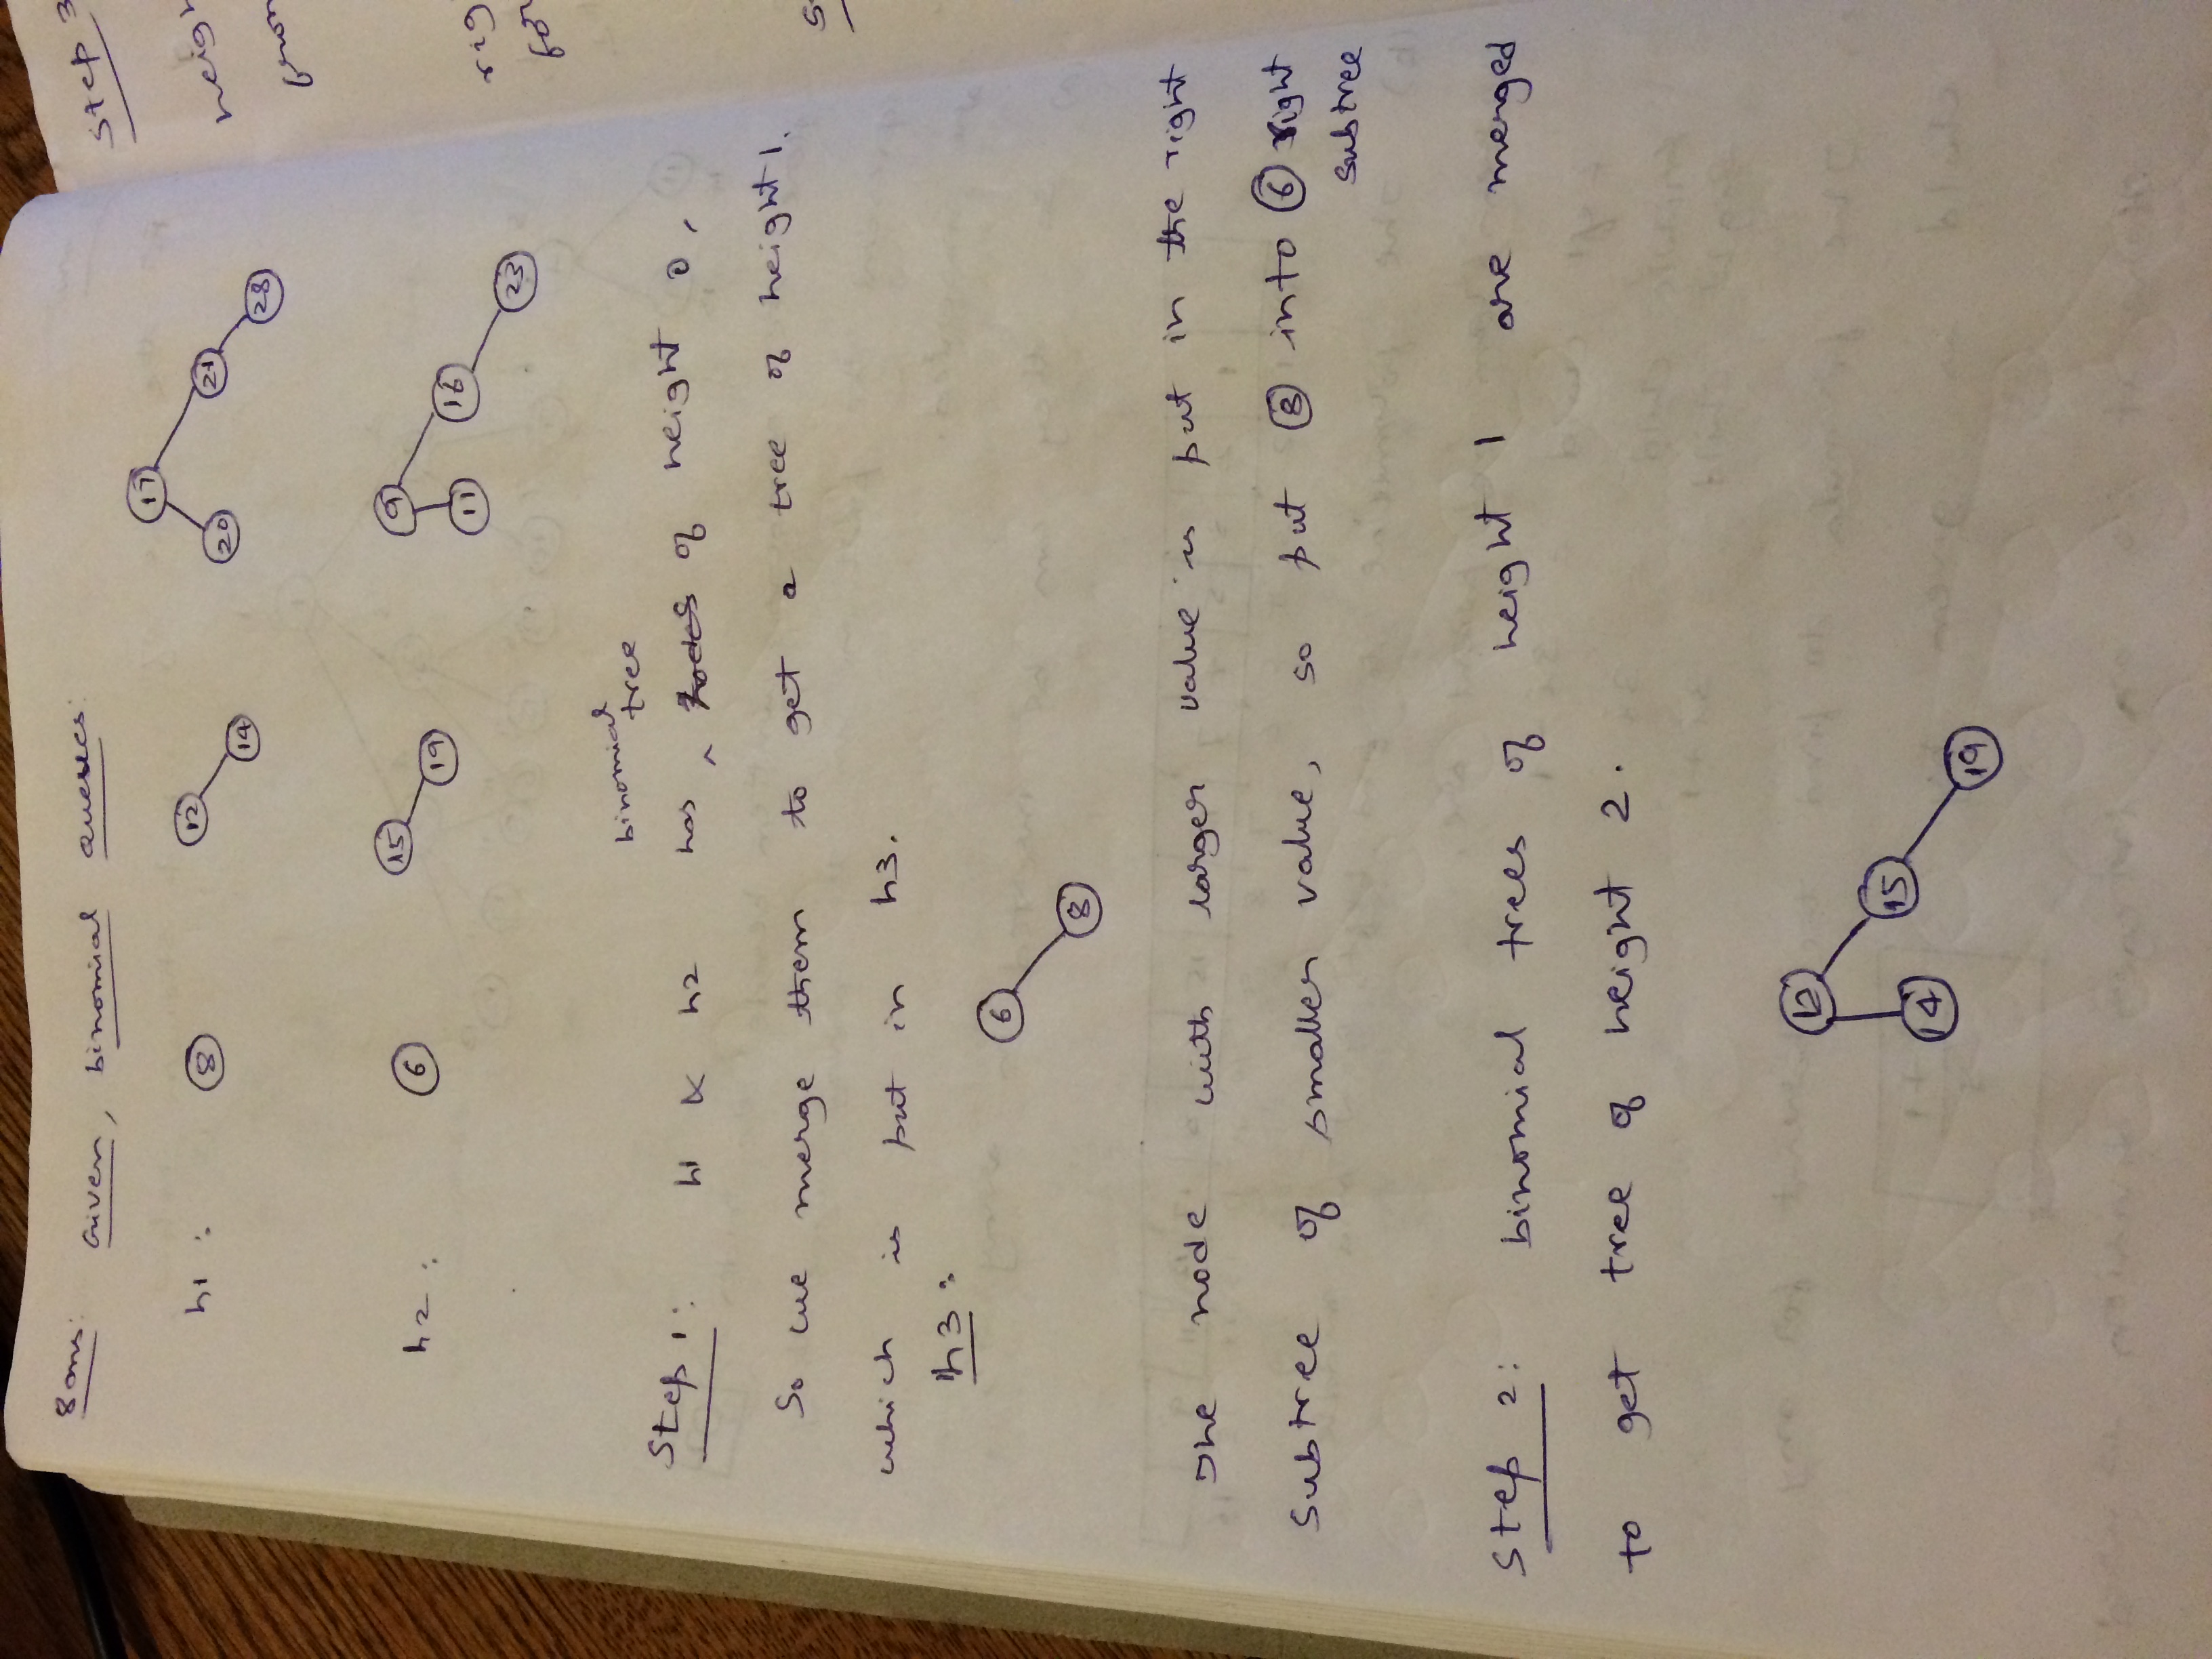 8 ans: Given, binomial queues:
h1 : 8 12 14 17 20 21 28
h2 : 6 15 19 9 11 16 23
binomial tree
Step 1: h1 & h2 has ^ nodes of height 0,
So we merge them to get a tree of height 1.
which is put in h3.
h3 :
6
8
The node with larger value is put in the right
subtree of smaller value, so put 8 into 6 right
subtree
Step 2: binomial trees of height 1 are merged
to get tree of height 2.
12
14 15
19
Step 3
heigh
from
rig
for
S